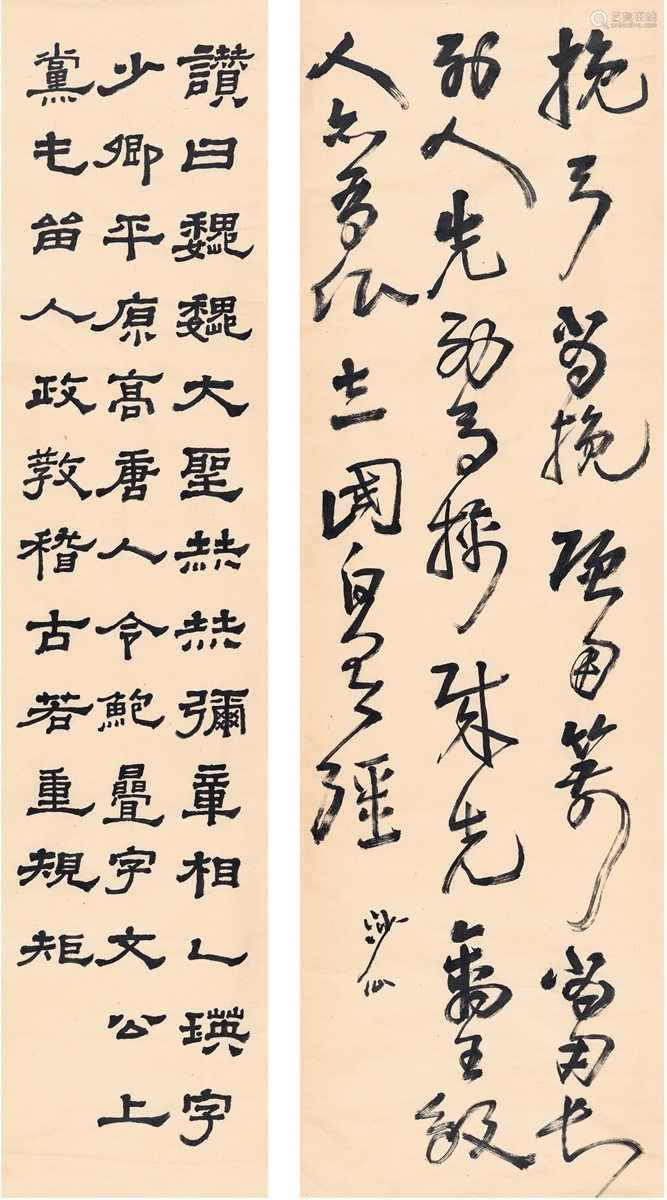 挽弓當挽强用箭當用長
射人先射馬擒賊先擒王殺
人亦有限立國自有疆
沙仙
讚曰魏魏大聖赫赫彌章相乙瑛字
少卿平原高唐人令鮑疊字文公上
黨屯留人政教稽古若重規矩